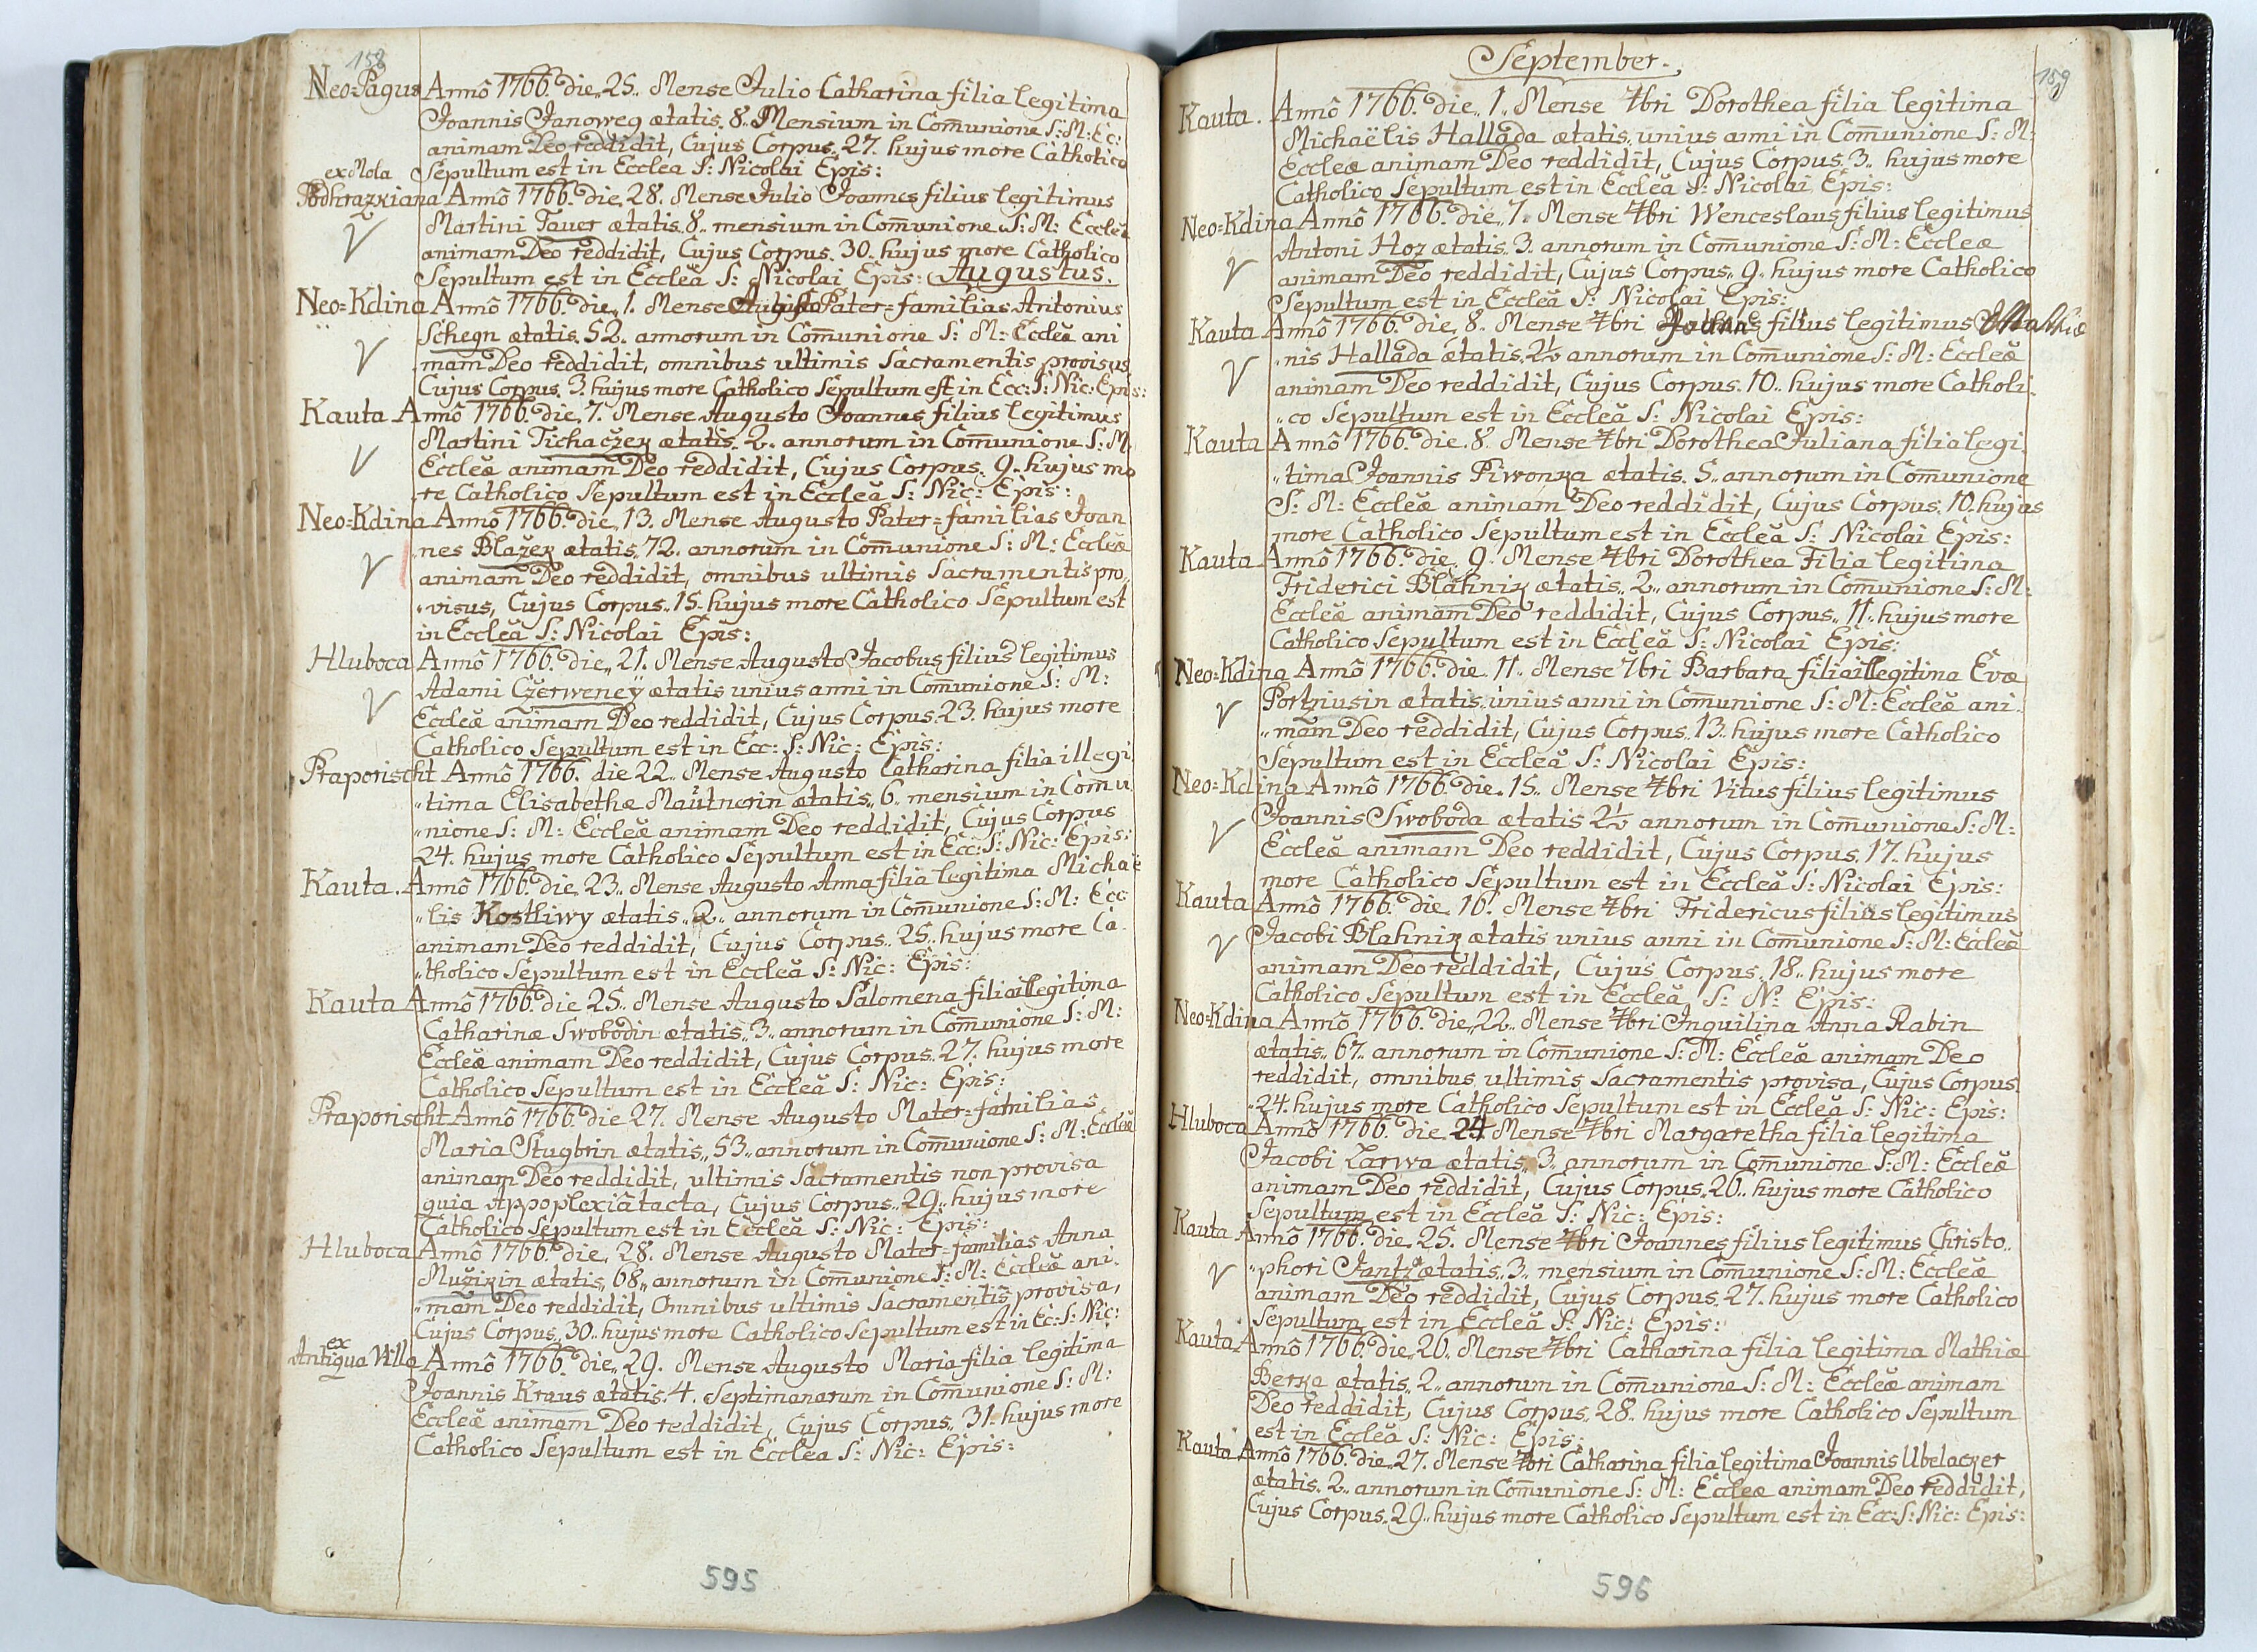 158
Neo=Pagus Annô 1766. die,, 25. Mense Julio Catharina filia legitima
Joannis Janoweg ætatis. 8.. Mensium in Com̄unione S: M: Ec:
animam Deo reddidit, Cujus Corpus. 27. hujus more Catholico
Sepultum est in Ecclea S: Nicolai Epis:
ex Mola
Podhrazkiana Annô 1766. die. 28. Mense Julio Joannes filius legitimus
Martini Tauer ætatis. 8.. mensium in Com̄unione S: M: Eccleæ
animam Deo reddidit, Cujus Corpus. 30. hujus more Catholico
Sepultum est in Eccleâ S: Nicolai Epis:
Augustus.
Neo=Kdina Annô 1766. die,, 1. Mense Augusto Pater=familias Antonius
Schegn ætatis. 52. annorum in Com̄unione S: M: Eccleæ ani
mam Deo reddidit, omnibus ultimis Sacramentis provisus,
Cujus Corpus. 3. hujus more Catholico Sepultum est in Ecc: S: Nic: Epis:
Kauta Annô 1766. die. 7. Mense Augusto Joannes filius legitimus
Martini Tichaczek ætatis. 2.. annorum in Com̄unione S: M:
Eccleæ animam Deo reddidit, Cujus Corpus. 9.. hujus mo
re Catholico Sepultum est in Eccleâ S: Nic: Epis:
Neo=Kdina Annô 1766. die. 13. Mense Augusto Pater=familias Joan
nes Blažek ætatis. 72. annorum in Com̄unione S: M: Eccleæ
animam Deo reddidit, omnibus ultimis Sacramentis pro,,
,,visus, Cujus Corpus.. 15. hujus more Catholico Sepultum est
in Eccleâ S: Nicolai Epis:
Hluboca Annô 1766. die,, 21. Mense Augusto Jacobus filius legitimus
Adami Czerweney ætatis unius anni in Com̄unione S: M:
Eccleæ animam Deo reddidit, Cujus Corpus. 23. hujus more
Catholico Sepultum est in Ecc: S: Nic: Epis:
Praporischt Annô 1766. die 22.. Mense Augusto Catharina filia illegi
,,tima Elisabethæ Mautnerin ætatis,, 6.. mensium in Com̄u
,,nione S: M: Eccleæ animam Deo reddidit, Cujus Corpus
24. hujus more Catholico Sepultum est in Ecc: S: Nic: Epis:
Kauta. Annô 1766. die. 23.. Mense Augusto Anna filia legitima Michaë
,,lis Kostliwy ætatis,, 2.. annorum in Com̄unione S: M: Ecc
animam Deo reddidit, Cujus Corpus.. 25.. hujus more Ca
,,tholico Sepultum est in Eccleâ S: Nic: Epis:
Kauta Annô 1766. die 25. Mense Augusto Salomena filia illegitima
Catharinæ Swobodin ætatis,, 3.. annorum in Com̄unione S: M:
Eccleæ animam Deo reddidit, Cujus Corpus. 27. hujus more
Catholico Sepultum est in Eccleâ S: Nic: Epis:
Praporischt Annô 1766. die 27. Mense Augusto Mater=familias
Maria Stugbrin ætatis,, 53.. annorum in Com̄unione S: M: Eccleæ
animam Deo reddidit, ultimis Sacramentis non provisa
quia Appoplexiâ tacta, Cujus Corpus.. 29.. hujus more
Catholico Sepultum est in Eccleâ S: Nic: Epis:
Hluboca Annô 1766. die,, 28. Mense Augusto Mater=familias Anna
Mužikin ætatis,, 68,, annorum in Com̄unione S: M: Eccleæ ani
,,mam Deo reddidit, Omnibus ultimis Sacramentis provisa,
Cujus Corpus,, 30.. hujus more Catholico Sepultum est in Ec: S: Nic:
ex
Antiqua Villa Annô 1766. die,, 29. Mense Augusto Maria filia legitima
Joannis Kraus ætatis. 4. Septimanarum in Com̄unione S: M:
Eccleæ animam Deo reddidit, Cujus Corpus,, 31. hujus more
Catholico Sepultum est in Ecclea S: Nic: Epis:
595
September.
159
Kauta. Annô 1766. die,, 1.. Mense 7bri Dorothea filia legitima
Michaëlis Hallada ætatis. unius anni in Com̄unione S: M:
Eccleæ animam Deo reddidit, Cujus Corpus. 3.. hujus more
Catholico Sepultum est in Eccleâ S: Nicolai Epis:
Neo=Kdina Annô 1766. die,, 7. Mense 7bri Wenceslaus filius legitimus
Antoni Hoz ætatis. 3. annorum in Com̄unione S: M: Eccleæ
animam Deo reddidit, Cujus Corpus,, 9.. hujus more Catholico
Sepultum est in Eccleâ S: Nicolai Epis:
Kauta Annô 1766. die. 8.. Mense 7bri Joannes filius legitimus Mathiæ
,,nis Hallada ætatis. 2½ annorum in Com̄unione S: M: Eccleæ
animam Deo reddidit, Cujus Corpus. 10.. hujus more Catholi
,,co Sepultum est in Eccleâ S: Nicolai Epis:
Kauta Annô 1766. die. 8. Mense 7bri Dorothea Juliana filia legi
,,tima Joannis Piwonka ætatis. 5.. annorum in Com̄unione
S: M: Eccleæ animam Deo reddidit, Cujus Corpus. 10. hujus
more Catholico Sepultum est in Eccleâ S: Nicolai Epis:
Kauta Annô 1766. die. 9. Mense 7bri Dorothea Filia legitima
Friderici Blahnik ætatis,, 2.. annorum in Com̄unione S: M:
Eccleæ animam Deo reddidit, Cujus Corpus,, 11.. hujus more
Catholico Sepultum est in Eccleâ S: Nicolai Epis:
Neo=Kdina Annô 1766. die. 11.. Mense 7bri Barbara filia illegitima Evæ
Portziusin ætatis. unius anni in Com̄unione S: M: Eccleæ ani
,,mam Deo reddidit, Cujus Corpus. 13. hujus more Catholico
Sepultum est in Eccleâ S: Nicolai Epis:
Neo=Kdina Annô 1766. die. 15.. Mense 7bri Vitus filius legitimus
Joannis Swoboda ætatis 2½ annorum in Com̄unione S: M:
Eccleæ animam Deo reddidit, Cujus Corpus. 17. hujus
more Catholico Sepultum est in Eccleâ S: Nicolai Epis:
Kauta Annô 1766. die. 16. Mense 7bri Fridericus filius legitimus
Jacobi Blahnik ætatis unius anni in Com̄unione S: M: Eccleæ
animam Deo reddidit, Cujus Corpus. 18.. hujus more
Catholico Sepultum est in Eccleâ S: N: Epis:
Neo=Kdina Annô 1766. die,, 22.. Mense 7bri Inquilina Anna Rabin
ætatis,, 67.. annorum in Com̄unione S: M: Eccleæ animam Deo
reddidit, omnibus ultimis Sacramentis provisa, Cujus Corpus
24. hujus more Catholico Sepultum est in Eccleâ S: Nic: Epis:
Hluboca Annô 1766. die. 24 Mense 7bri Margaretha filia legitima
Jacobi Larwa ætatis,, 3.. annorum in Com̄unione S: M: Eccleæ
animam Deo reddidit, Cujus Corpus,, 26.. hujus more Catholico
Sepultum est in Eccleâ S: Nic: Epis:
Kauta Annô 1766. die. 25. Mense 7bri Joannes filius legitimus Christo,,
,,phori Jantz ætatis,, 3.. mensium in Com̄unione S: M: Eccleæ
animam Deo reddidit, Cujus Corpus. 27. hujus more Catholico
Sepultum est in Eccleâ S: Nic: Epis:
Kauta Annô 1766. die,, 26.. Mense 7bri Catharina filia legitima Mathiæ
Berka ætatis,, 2.. annorum in Com̄unione S: M: Eccleæ animam
Deo reddidit, Cujus Corpus,, 28.. hujus more Catholico Sepultum
est in Eccleâ S: Nic: Epis:
Kauta Annô 1766. die,, 27. Mense 7bri Catharina filia legitima Joannis Ubelacker
ætatis. 2.. annorum in Com̄unione S: M: Eccleæ animam Deo reddidit,
Cujus Corpus,, 29.. hujus more Catholico Sepultum est in Ecc: S: Nic: Epis:
596